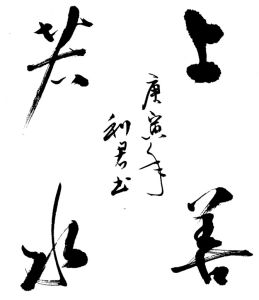 上善
若水
庚寅年
利君书